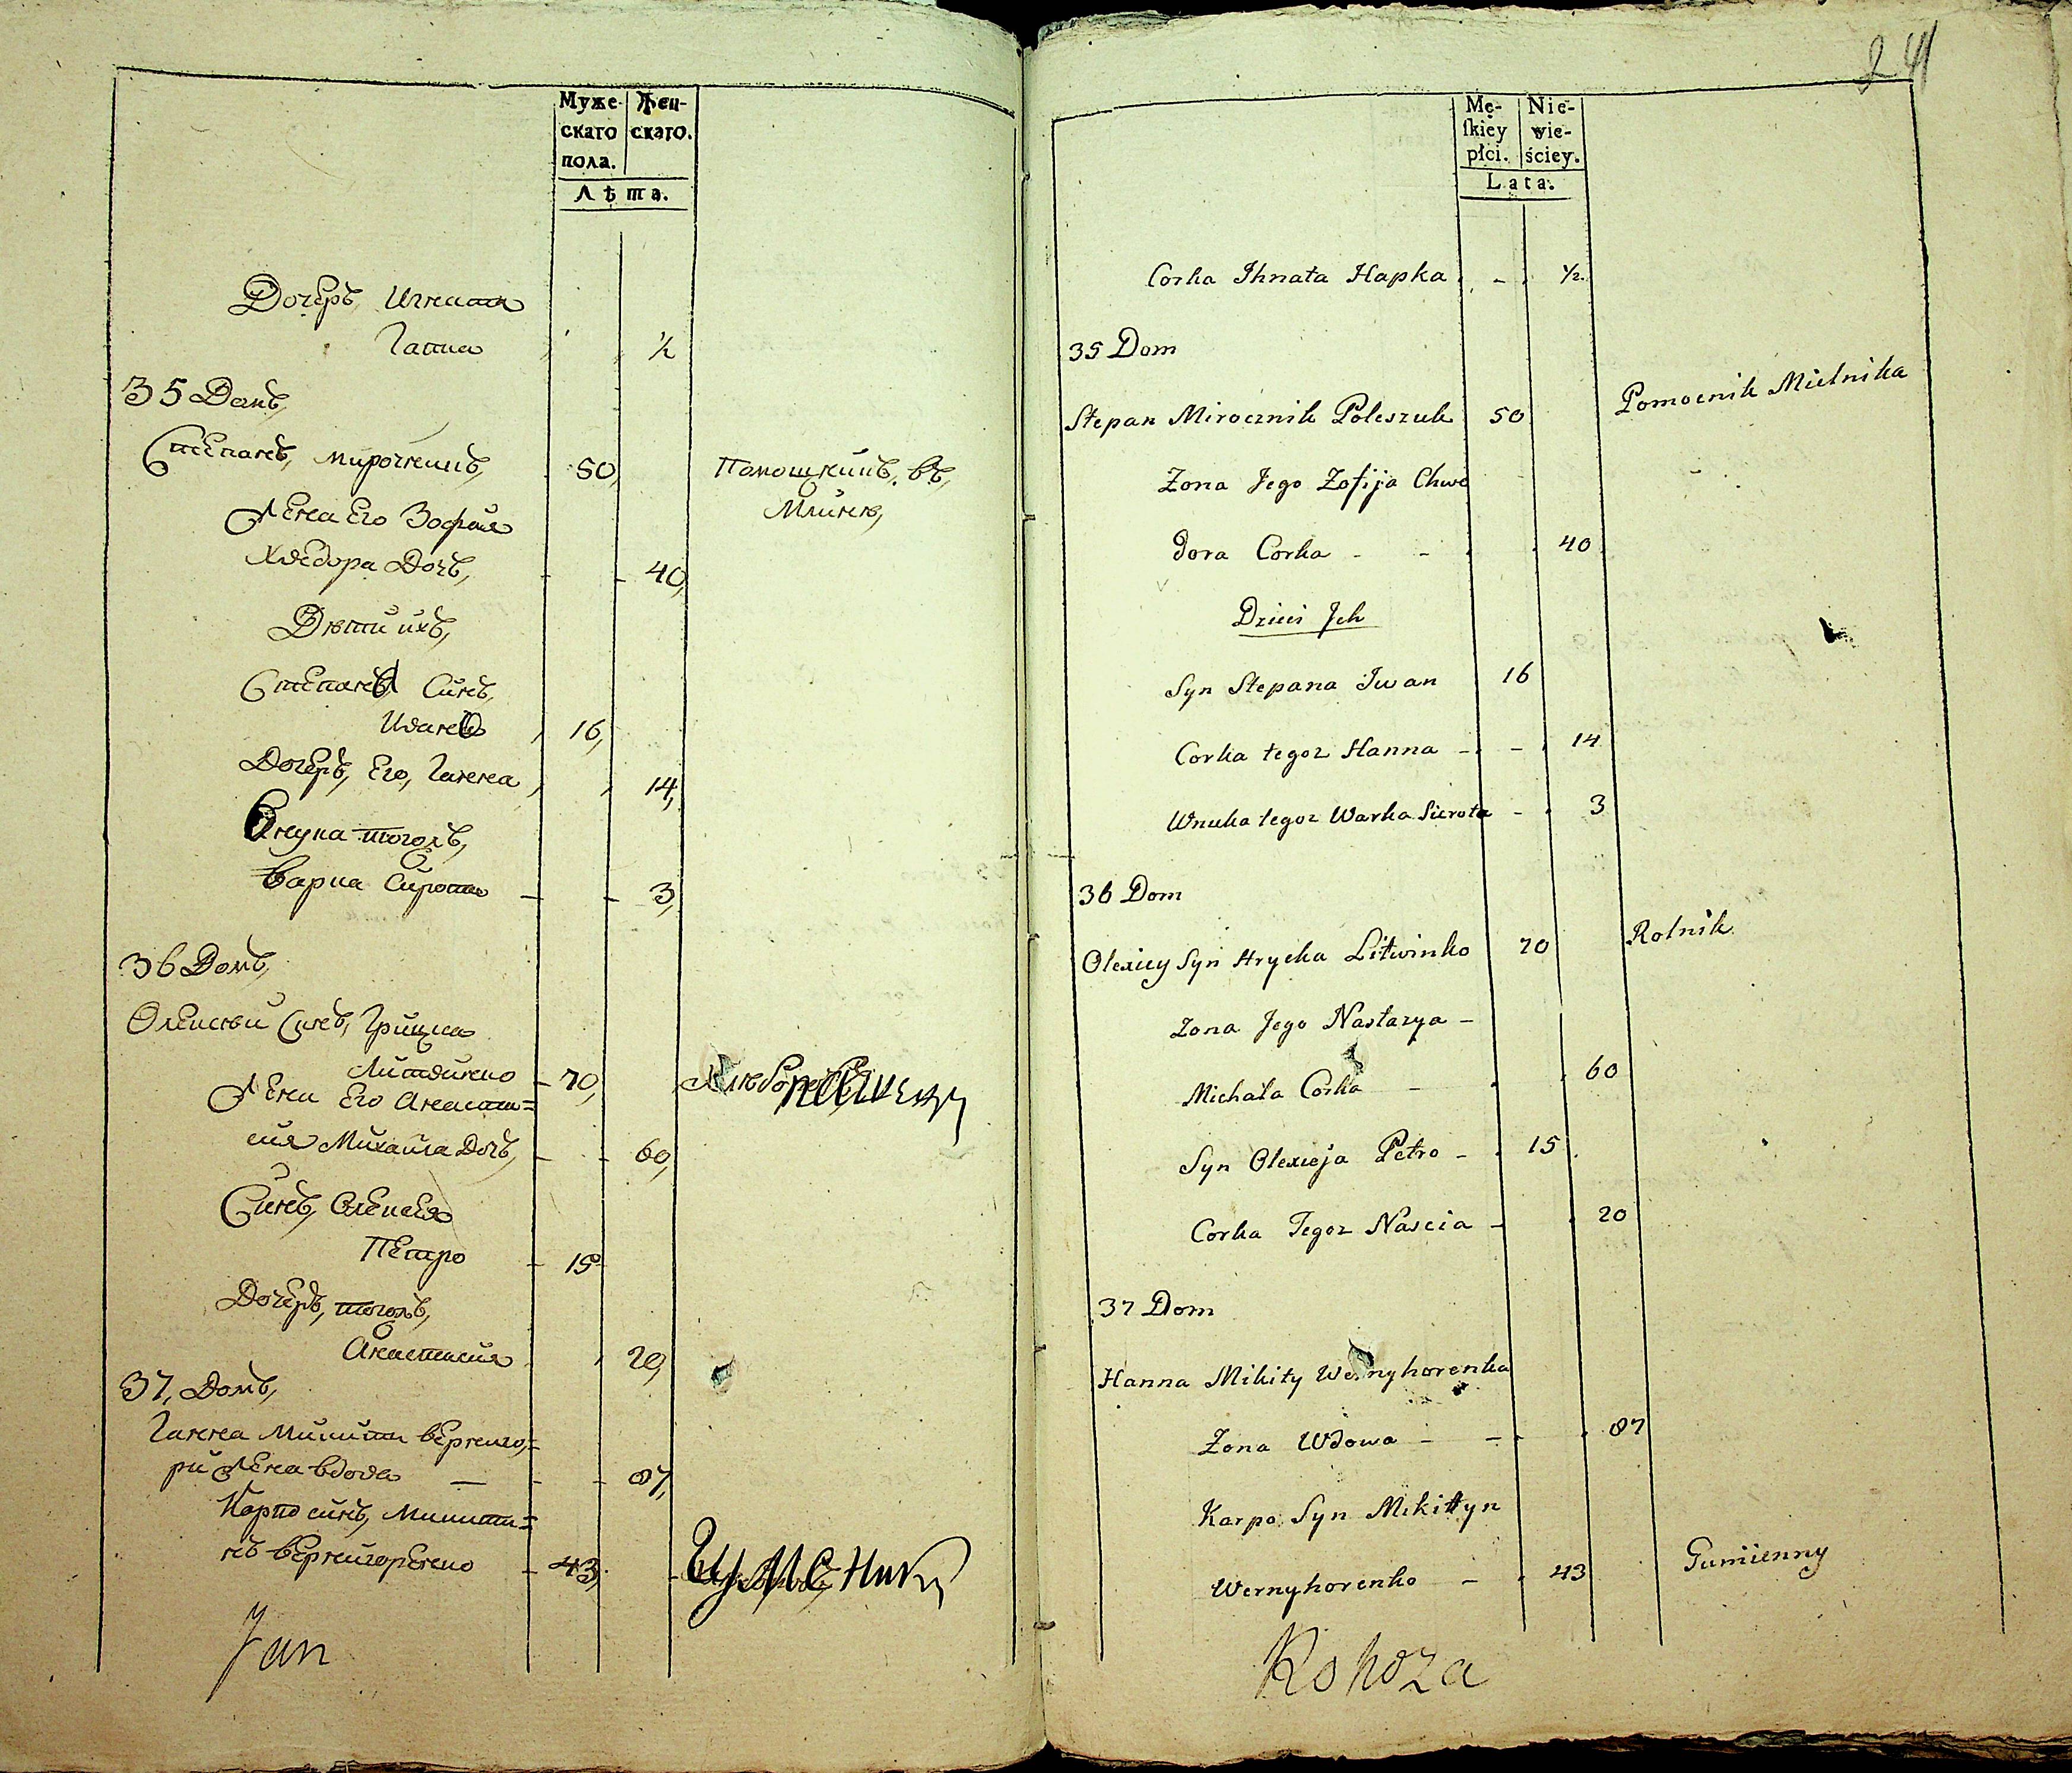 Муже-
скаго
пола.
Жен-
скаго.
Лѣта.
Дочеръ Игната
Гапка ½
35 Домъ,
Степанъ, мирочникъ, 50, Помошникъ, въ,
Млинѣ,
Жена Его Зофия
Хведора Дочъ, - - 40,
Дѣти ихъ,
Степана Синъ,
Иванъ 16,
Дочеръ, Его, Ганна 14,
Внука тогожъ,
Варка Сирота - - 3,
36 Домъ,
Олексѣй Синъ, Грицка
Литвинко - 70, Хлѣборобъ
Жена Его Анаста=
сия Михайла Дочъ, - - 60,
Синъ, Олексея
Петро - 15
Дочеръ, тогожъ,
Анастасия 20,
37, Домъ,
Ганна Микити Вернго,=
ри Жена вдова — - - 87,
Карпо синъ, Микити=
нъ вернигоренко - 43, Гуменникъ
Jan
241
Mę-
ſkiey
płci.
Nie-
wie-
ściey.
Lata.
Corka Ihnata Hapka - ½
35 Dom
Stepan Mirocznik Poleszuk 50 Pomocnik Mielnika
Zona Jego Zofija Chwe
dora Corka - - 40
Dzieci Jch
Syn Stepana Iwan 16
Corka tegoz Hanna - - 14
Wnuka tegoz Warka Sierota - 3
36 Dom
Olexiey Syn Hrycka Litwinko 70 Rolnik
Zona Jego Nastazya -
Michała Corka - 60
Syn Olexieja Petro - 15
Corka Tegoz Nascia - 20
37 Dom
Hanna Mikity Wernyhorenka
Zona Wdowa - - 87
Karpo Syn Mikityn
Wernyhorenko - 43 Gumienny
Kohoza